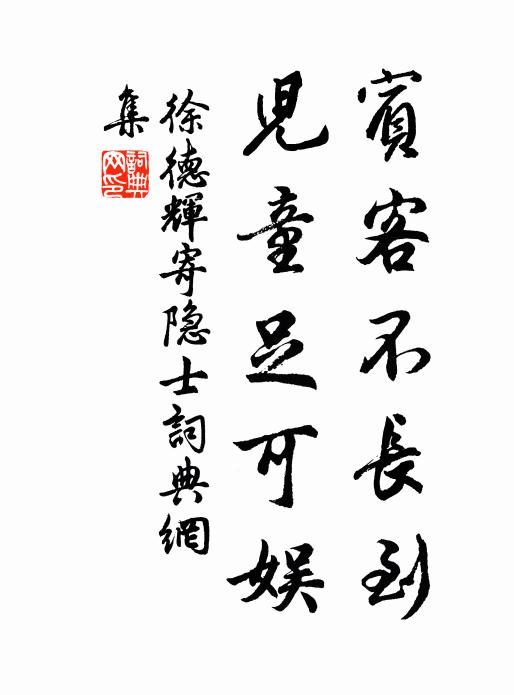 賓客不長到
兒童足可娱
徐德輝寄隐士詞典網
集
詞典網印